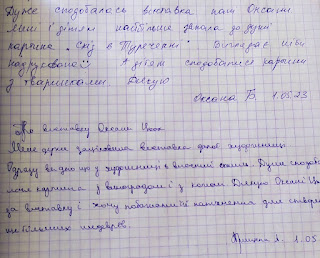 Дуже сподобалась виставка пані Оксани
Мені і дітям найбільше запала до душі
картина "Сніг в Туреччині". Виглядає ніби
надкусаною☺ А дітям сподобались картини
з тваринками. Дякую
Оксана Б. 1.05.23
виставку Оксани
Мене дуже зацікавила виставка цієї художниці
Одразу видно що у художниці є власний стиль. Дуже сподо
картина з виноградом і з котом Дякую Оксані
за виставку і хочу побажати їй натхнення для створ
більших шедеврів.
1.05